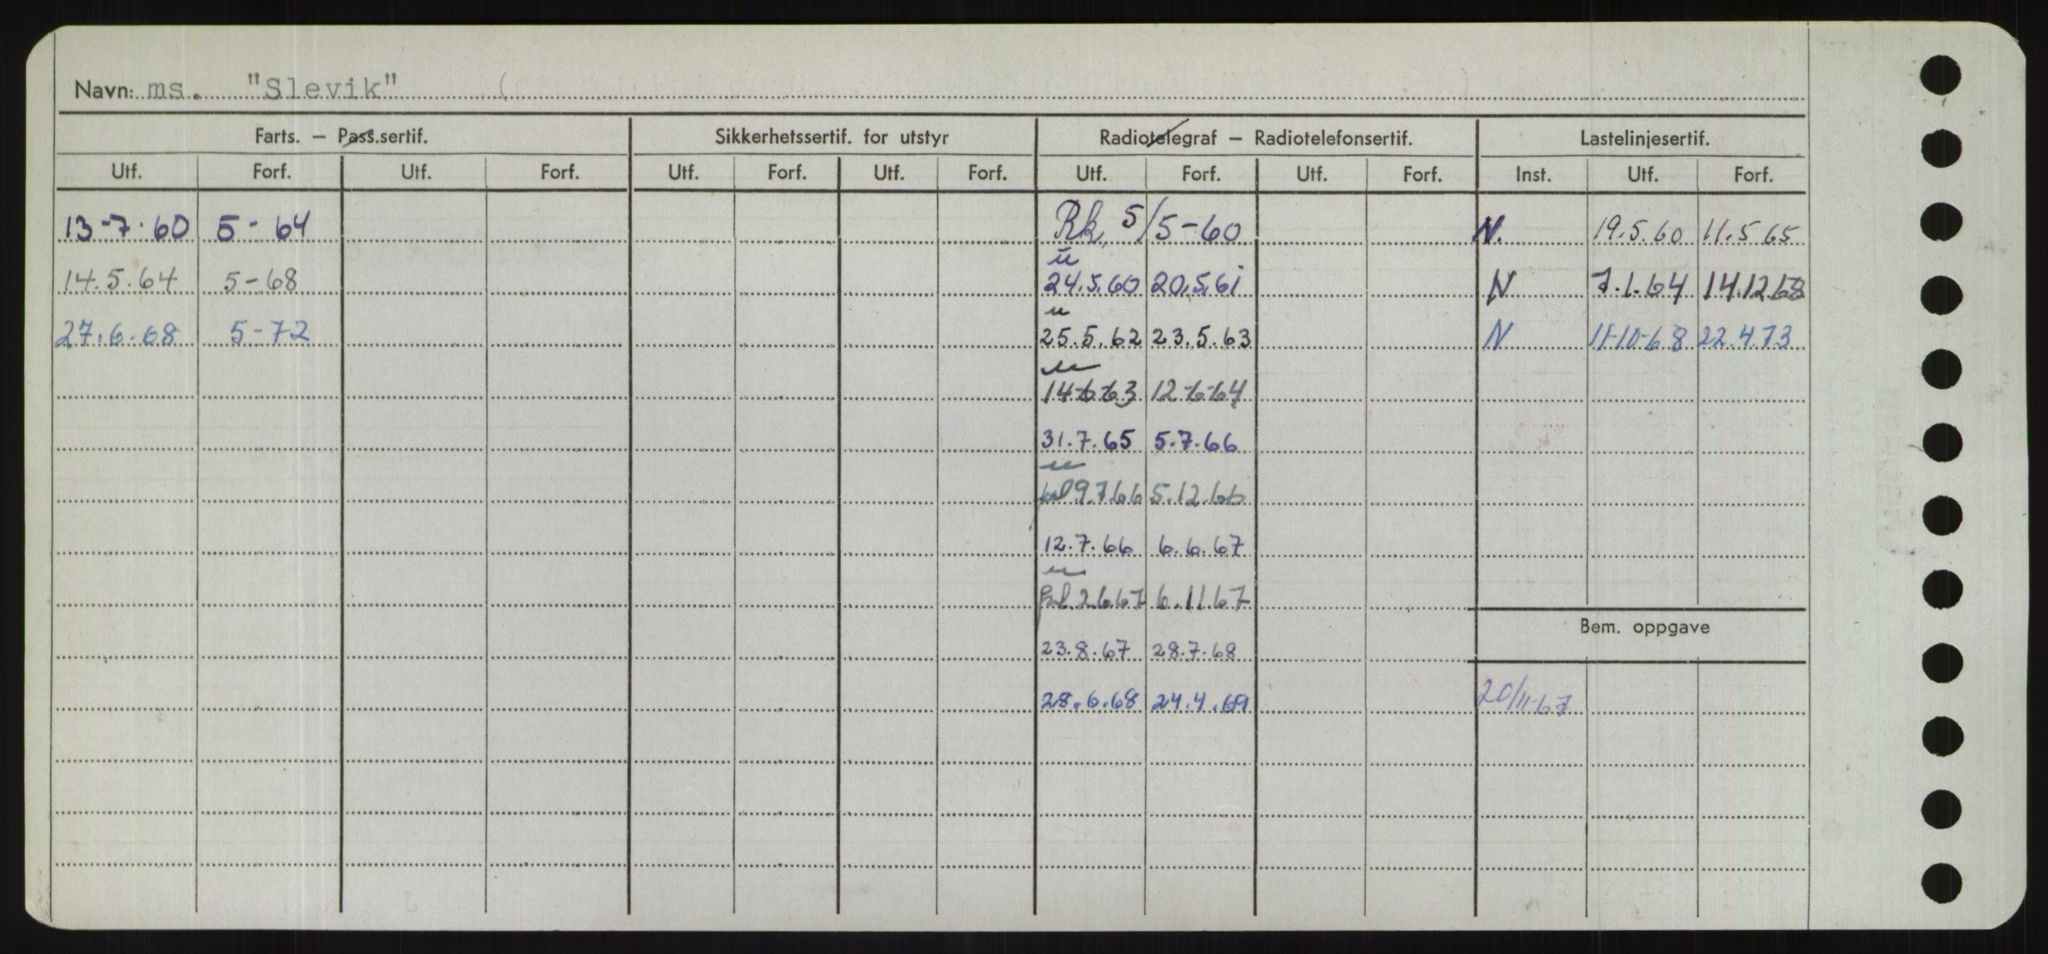 Navn: ms. "Slevik" (
Farts. – Pass.sertif. Sikkerhetssertif. for utstyr Radiotelegraf – Radiotelefonsertif. Lastelinjesertif.
Utf. Forf. Utf. Forf. Utf. Forf. Utf. Forf. Utf. Forf. Utf. Forf. Inst. Utf. Forf.
13-7-60 5-64 Rk. 5/5-60 N. 19.5.60 11.5 65
14.5.64 5-68 24.5.60 20.5.61 N 7.1.64 14.12.68
27.6.68 5-72 25.5.62 23.5.63 N 11-10-68 22.4.73
14-6-63 12-6-64
31.7.65 5.7.66
9.7.66 5.12.66
12.7.66 6.6.67
2.6.67 6.11.67
Bem. oppgave
23.8.67 28.7.68
28.6.68 24.4.69 20/11-67